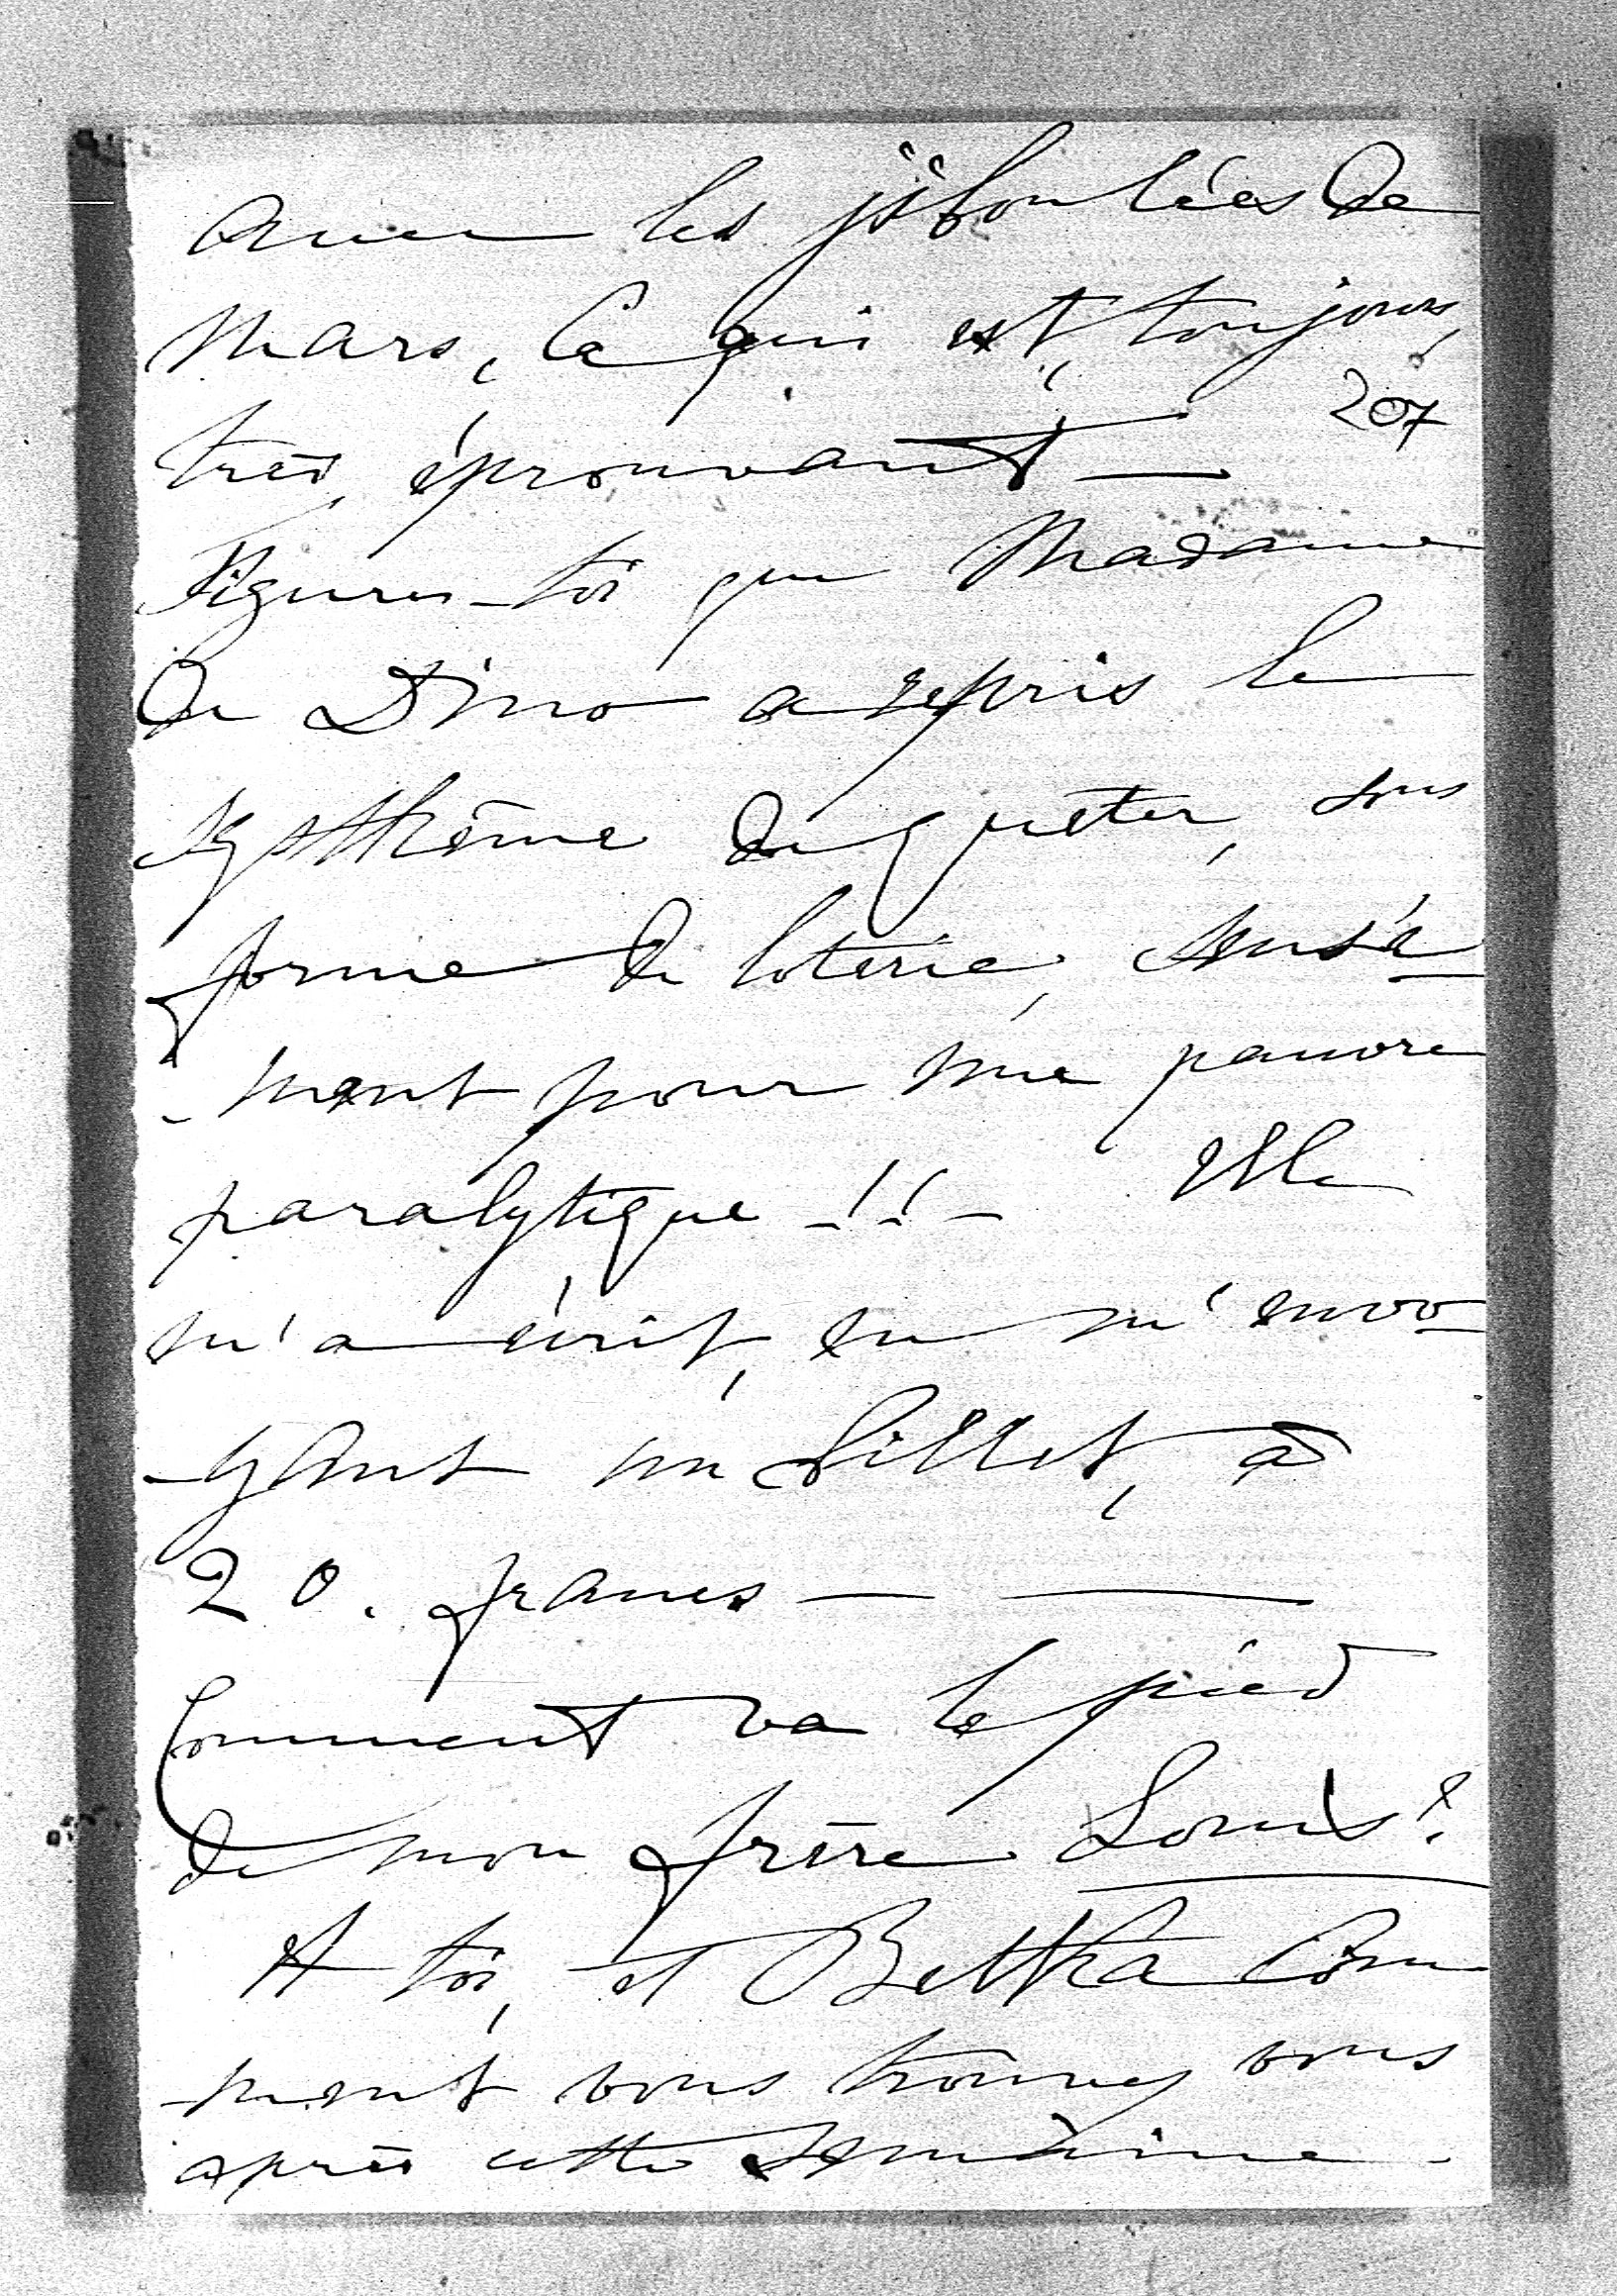 avec les jiboulées de
Mars, ce qui est, toujours,
207
très, éprouvant —
Figures-toi que Madame
de Dino a repris le
systhême de quêter, sous
forme de loterie,
-ment pour une pauvre
paralytique -!!- Elle
m'a écrit, en m'envo-
-yant un billet, à
20. francs — —
Comment va le pied
de mon frère Louis?
Et toi, et Bettka Com
-ment vous trouvez vous
après cette semaine